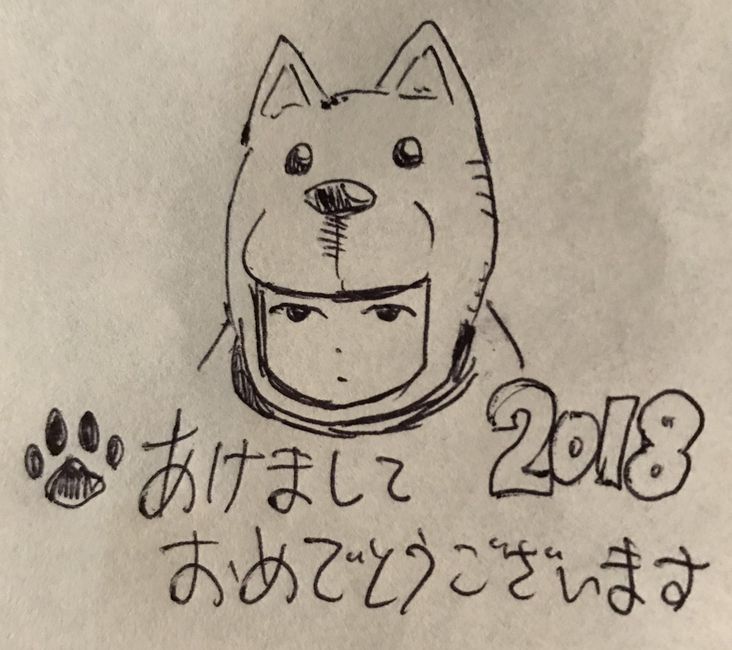 あけまして
2018
おめでとうございます